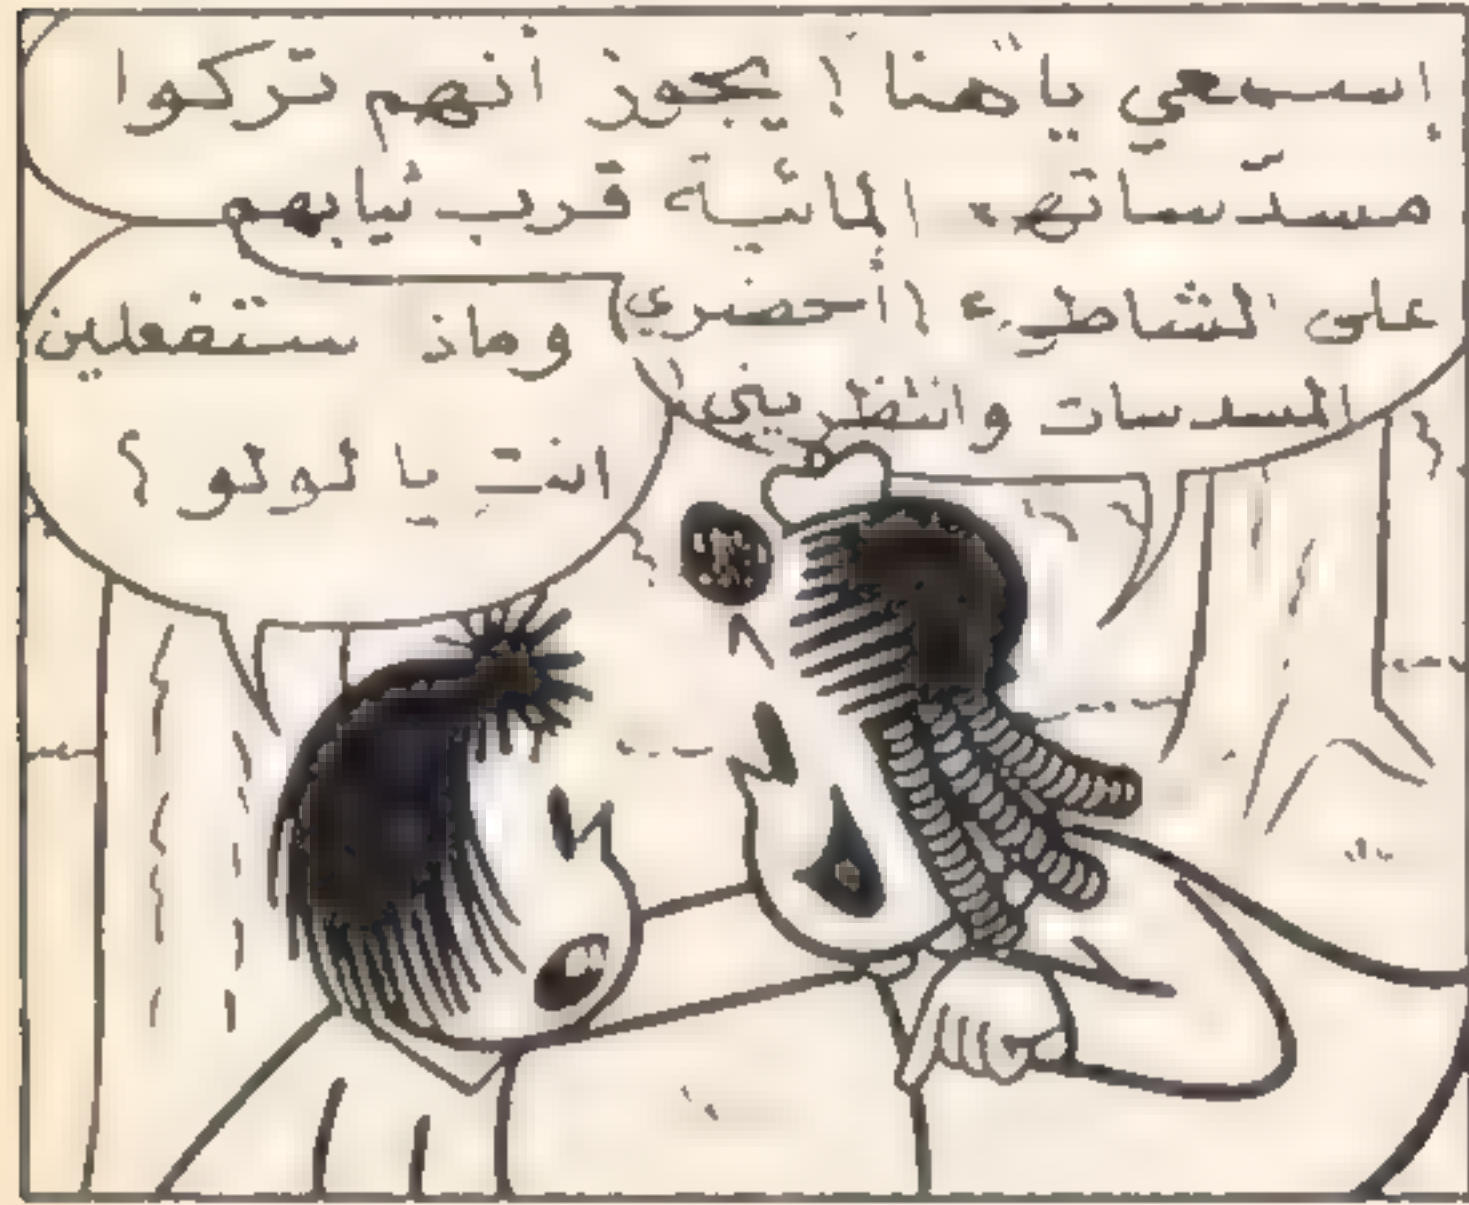 إسمعي يا هنا ! يجوز أنهم تركوا
مسدّساتهم المائية قرب ثيابهم
على الشاطىء ! أحضري
المسدسات وانتظريني !
وماذ ستفعلين
انت يا لولو ؟